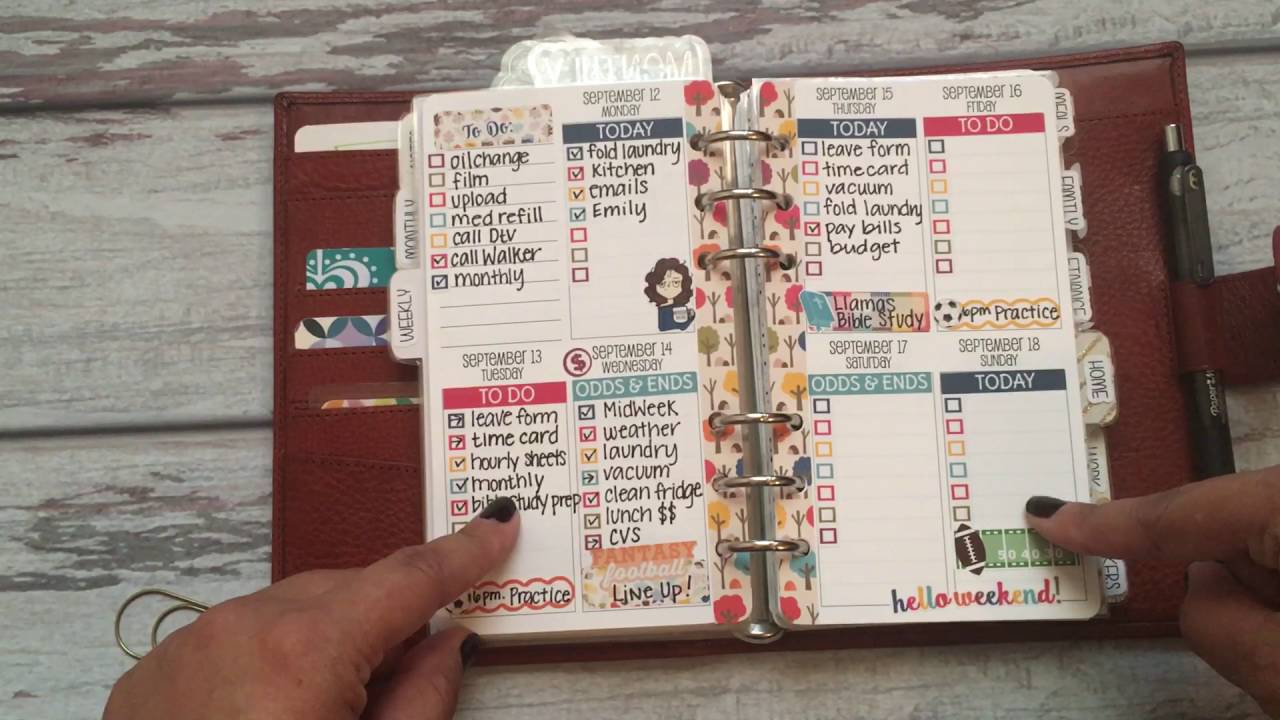 MONTHLY
To Do:
oil change
film
upload
med refill
call Dtv
call Walker
monthly
SEPTEMBER 12
MONDAY
TODAY
fold laundry
kitchen
emails
Emily
SEPTEMBER 13
TUESDAY
TO DO
leave form
time card
hourly sheets
monthly
bible study prep
6pm. Practice
$
SEPTEMBER 14
WEDNESDAY
ODDS & ENDS
MidWeek
weather
laundry
vacuum
clean fridge
lunch $$
CVS
FANTASY
football
Line Up!
SEPTEMBER 15
THURSDAY
TODAY
leave form
time card
vacuum
fold laundry
pay bills
budget
Llamas
Bible Study
SEPTEMBER 16
FRIDAY
TO DO
6pm Practice
SEPTEMBER 17
SATURDAY
ODDS & ENDS
SEPTEMBER 18
SUNDAY
TODAY
50 40 30
hello weekend!
MONTHLY
WEEKLY
MEALS
FAMILY
FINANCE
HOME
WORK